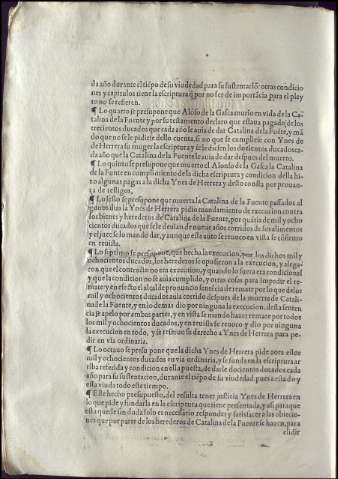 da año durante el tiēpo de su viudedad para su sustentaciō: otras condicio
nes y capitulos tiene la escriptura q̄ por no ser de importācia para el pleyto
no se refieren.
¶ Lo quarto se presupone que Alonso de la Gasca murio en vida de la Ca-
talina de la Fuente y por su testamento declaro que estaua pagado de los
trezientos ducados que cada año le auia de dar Catalina de la Fuēte, y mā
do que no se le pidiesse dello cuenta. si no que se cumpliesse con Ynes de
de Herrera su muger la escriptura y se le diessen los dozientos ducados ca-
da año que la Catalina de la Fuente le auia de dar despues del muerto.
¶ Lo quinto se presupone que muerto el Alonso de la Gasca la Catalina
de la Fuente en cumplimiento de la dicha escriptura y condicion della hi-
zo algunas pagas a la dicha Ynes de Herrera y desto consta por prouan-
ça de testigos.
¶ Lo sesto se presupone que muerta la Catalina de la Fuente passados al
gunos dias la Ynes de Herrera pidio mandamiento de execucion contra
los bienes y herederos de Catalina de la Fuente, por quātia de mil y ocho
cientos ducados que se deuian de nueue años corridos de los alimentos
y el juez se lo mando dar, y aunque esta auto se reuoco en vista se cōfirmo
en reuista.
¶ Lo septimo se presupone, que hecha la execucion, por los dichos mil y
ochocientos ducados, los herederos se opusieron a la execucion, y alega-
ron que el contrato no era executiuo, y quando lo fuera era condicional
y que la condicion no se auia cumplido, y otras cosas para impedir el re-
mate: y en efecto el alcalde pronuncio sentēcia de remate por lo que de los
mil y ochocientos ducados auia corrido despues de la muerte de Catali-
na de la Fuente, y en lo demas dio por ninguna la execucion. desta senten
cia se apelo por ambas partes, y en vista se mando hazer remate por todos
los mil y ochocientos ducados, y en reuista se reuoco y dio por ninguna
la execucion en todo, y se reseruo su derecho a Ynes de Herrera para pe-
dir en via ordinaria.
¶ Lo octauo se presupone que la dicha Ynes de Herrera pide aora estos
mil y ochocientos ducados en via ordinaria, y se funda en la escriptura ar
riba referida y condicion en ella puesta, de darle dozientos ducados cada
año para su sustentacion, durante el tiēpo de su viudedad, pues a biuido y
esta viuda todo este tiempo.
¶ Este hecho presupuesto, del resulta tener justicia Ynes de Herrera en
lo que pide y fundarla en la escriptura que tiene presentada, y assi para que
esta quede fundada solo es necesario responder y satisfazer a las obiectio-
nes que por parte de los herederos de Catalina de la Fuente se hazen, para
elidir